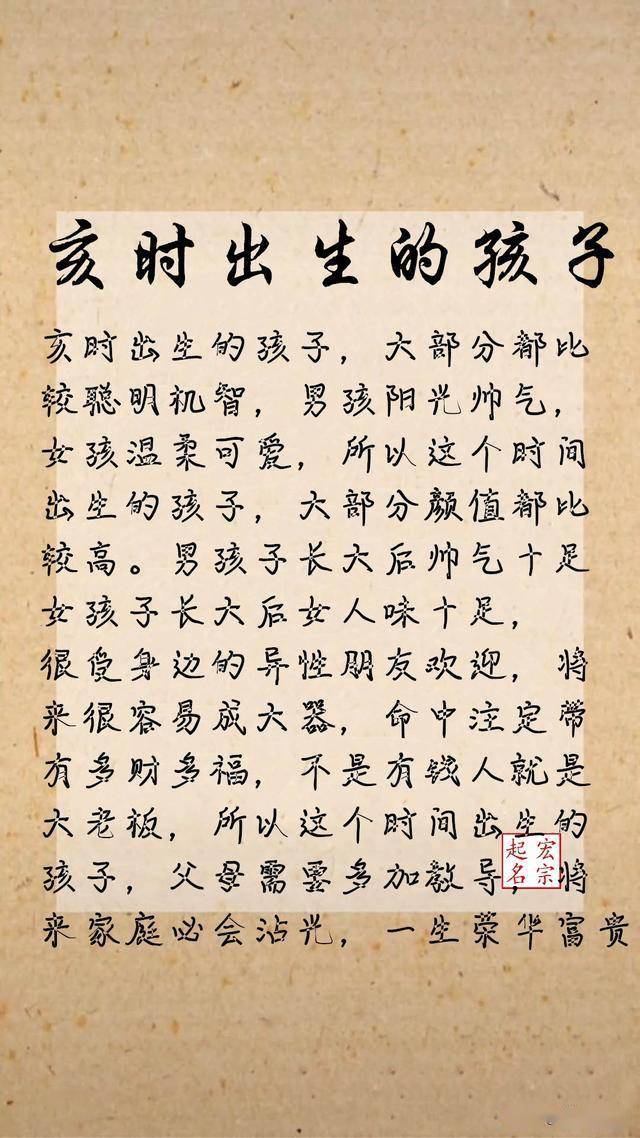 亥时出生的孩子
亥时出生的孩子，大部分都比
较聪明机智，男孩阳光帅气，
女孩温柔可爱，所以这个时间
出生的孩子，大部分颜值都比
较高。男孩子长大后帅气十足
女孩子长大后女人味十足，
很受身边的异性朋友欢迎，将
来很容易成大器，命中注定带
有多财多福，不是有钱人就是
大老板，所以这个时间出生的
孩子，父母需要多加教导，将
来家庭必会沾光，一生荣华富贵
宏宗
起名